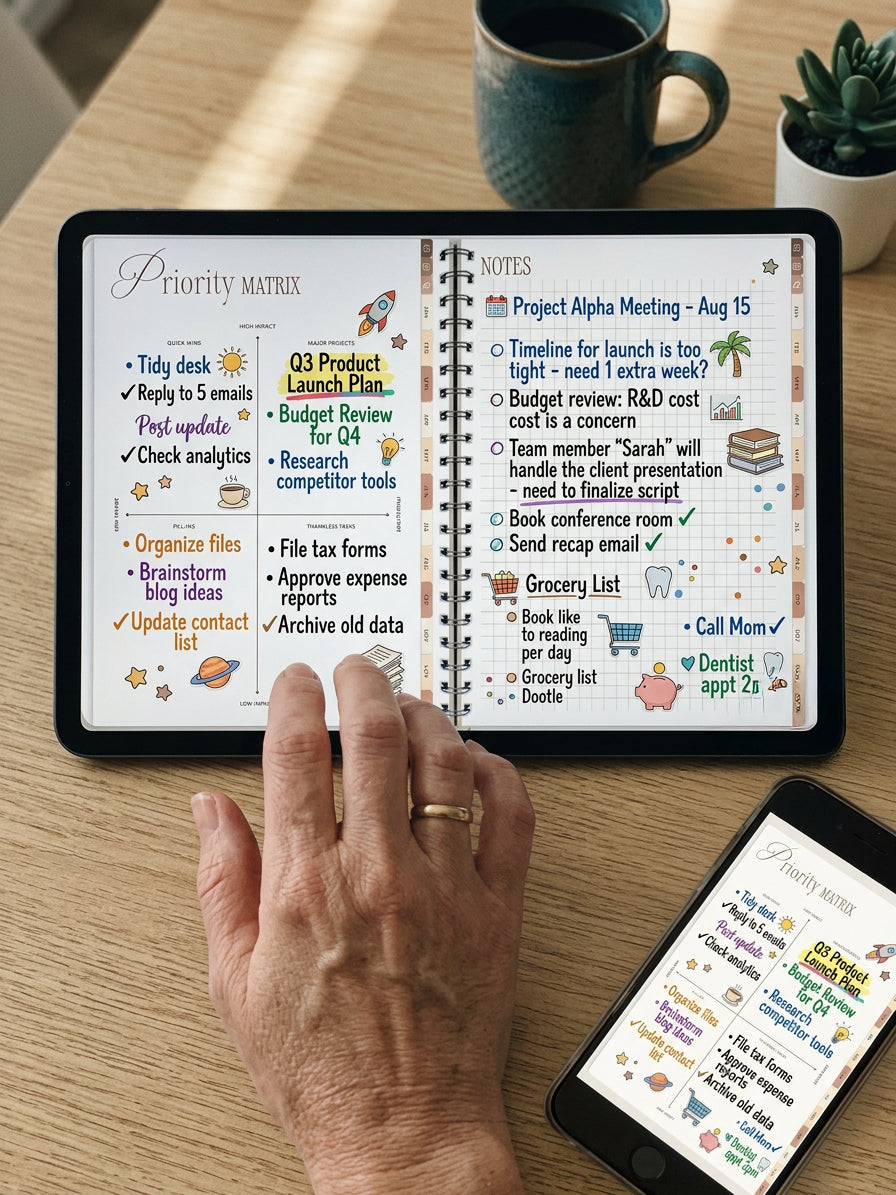 Priority MATRIX
HIGH IMPACT
QUICK WINS
• Tidy desk
✓Reply to 5 emails
Post update
✓Check analytics
MAJOR PROJECTS
Q3 Product
Launch Plan
• Budget Review
for Q4
• Research
competitor tools
• Organize files
• Brainstorm
blog ideas
✓Update contact
list
THANKLESS TASKS
• File tax forms
• Approve expense
reports
✓Archive old data
NOTES
Project Alpha Meeting – Aug 15
Timeline for launch is too
tight – need 1 extra week?
Budget review: R&D cost
cost is a concern
Team member “Sarah” will
handle the client presentation
– need to finalize script
Book conference room ✓
Send recap email ✓
Grocery List
Book like
to reading
per day
Grocery list
Dootle
• Call Mom ✓
Dentist
appt
Priority MATRIX
• Tidy desk
✓Reply to 5 emails
Post update
✓Check analytics
Q3 Product
Launch Plan
• Budget Review
for Q4
• Research
competitor tools
• Organize files
blog ideas
✓Update contact
list
• File tax forms
• Approve expense
reports
✓Archive old data